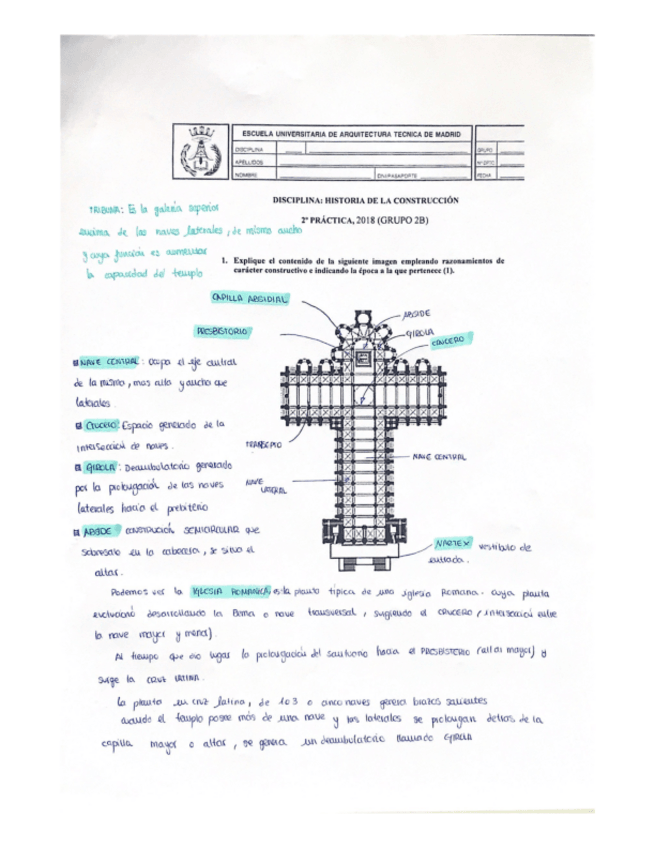 ESCUELA UNIVERSITARIA DE ARQUITECTURA TECNICA DE MADRID
DISCIPLINA
GRUPO
APELLIDOS
Nº DPTO
NOMBRE
DNI/PASAPORTE
FECHA
DISCIPLINA: HISTORIA DE LA CONSTRUCCIÓN
2ª PRÁCTICA, 2018 (GRUPO 2B)
TRIBUNA: Es la galería superior
encima de las naves laterales, de mismo ancho
y cuya función es aumentar
la capacidad del templo
1. Explique el contenido de la siguiente imagen empleando razonamientos de
carácter constructivo e indicando la época a la que pertenece (1).
CAPILLA ABSIDIAL
ABSIDE
PRESBITORIO
GIROLA
CRUCERO
NAVE CENTRAL: Ocupa el eje central
de la misma, mas alta y ancha que
laterales.
CRUCERO: Espacio generado de la
intersección de naves.
TRANSEPTO
NAVE CENTRAL
GIROLA: Deambulatorio generado
por la prolongación de las naves
laterales hacia el prebiterio
NAVE
LATERAL
ABSIDE construción SEMICIRCULAR que
sobresale en la cabecera, se situa el
altar.
NARTEX vestíbulo de
entrada.
Podemos ver la IGLESIA ROMANICA es la planta típica de una iglesia Romana. cuya planta
evolucionó desarrollando la Bema o nave transversal, surgiendo el CRUCERO (intersección entre
la nave mayor y menor).
Al tiempo que dio lugar la prolongación del santuario hacia el PRESBITERIO (altar mayor) y
surge la CRUZ LATINA.
La planta en cruz latina, de 1 o 3 o cinco naves genera brazos salientes
cuando el templo posee más de una nave y las laterales se prolongan detras de la
capilla mayor o altar, se genera un deambulatorio llamado GIROLA